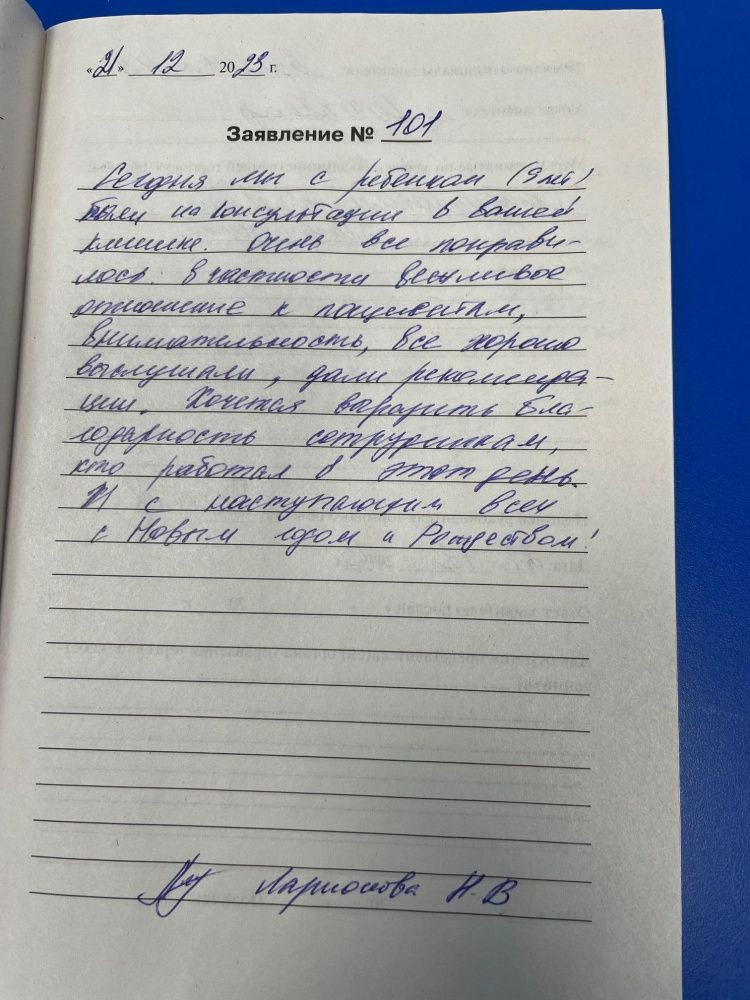 «21» 12 2023 г.
Заявление № 101
Сегодня мы с ребенком (9 лет)
были на консультации в вашей
клинике. Очень все понрави-
лось. В частности вежливое
отношение к пациентам,
внимательность, все хорошо
выслушали, дали рекоменда-
ции. Хочется выразить бла-
годарность сотрудникам,
кто работал в этот день.
И с наступающим всех
с Новым годом и Рождеством!
Ларионова Н.В